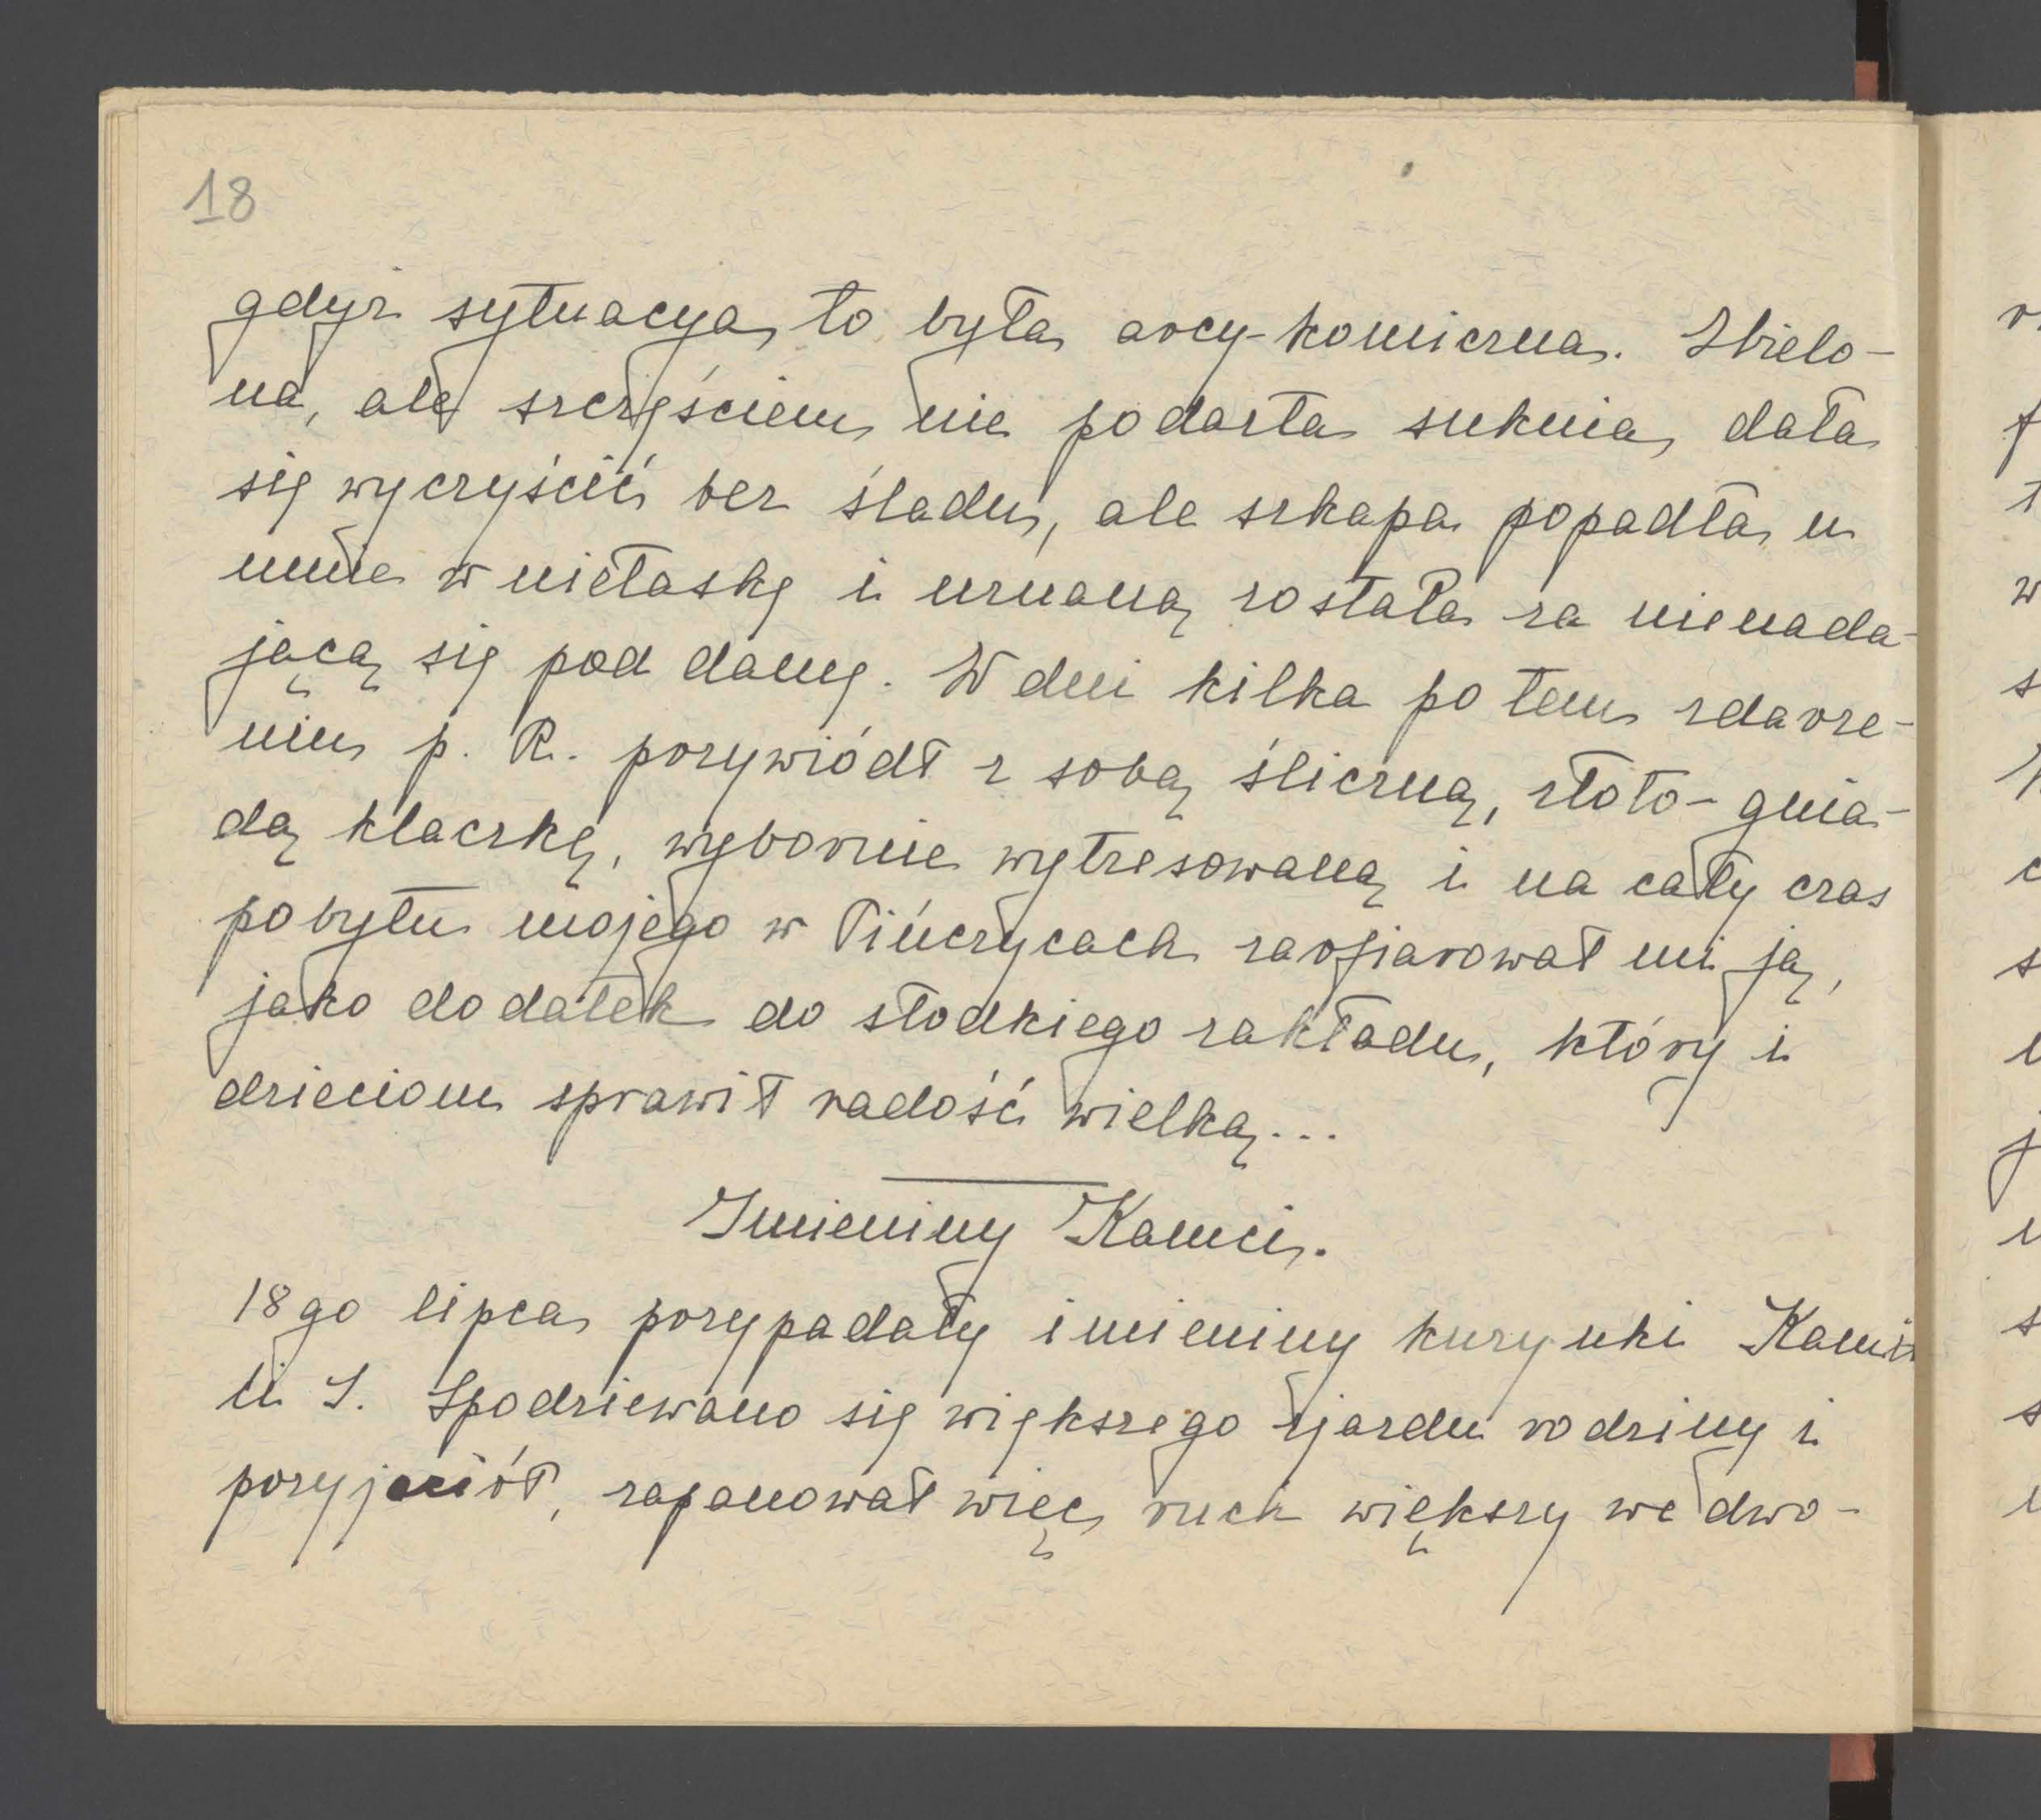 18
gdyż sytuacya to była arcy-komiczna. Zbielo-
na, ale szczęściem nie podarta suknia, dała
się wyczyścić bez śladu, ale szkapa popadła u
mnie w niełaskę i uznaną została za nienada-
jącą się pod damę. W dni kilka po tem zdarze-
niu p. R. przywiódł z sobą śliczną, złoto-gnia-
dą klaczkę, wybornie wytresowaną i na cały czas
pobytu mojego w Pińczycach zaofiarował mi ją,
jako dodatek do słodkiego zakładu, który i
dzieciom sprawił radość wielką...
Imieniny Kamci.
18go lipca przypadały imieniny kuzynki Kami-
li S. Spodziewano się większego zjazdu rodziny i
przyjaciół, zapanował więc ruch większy we dwo-